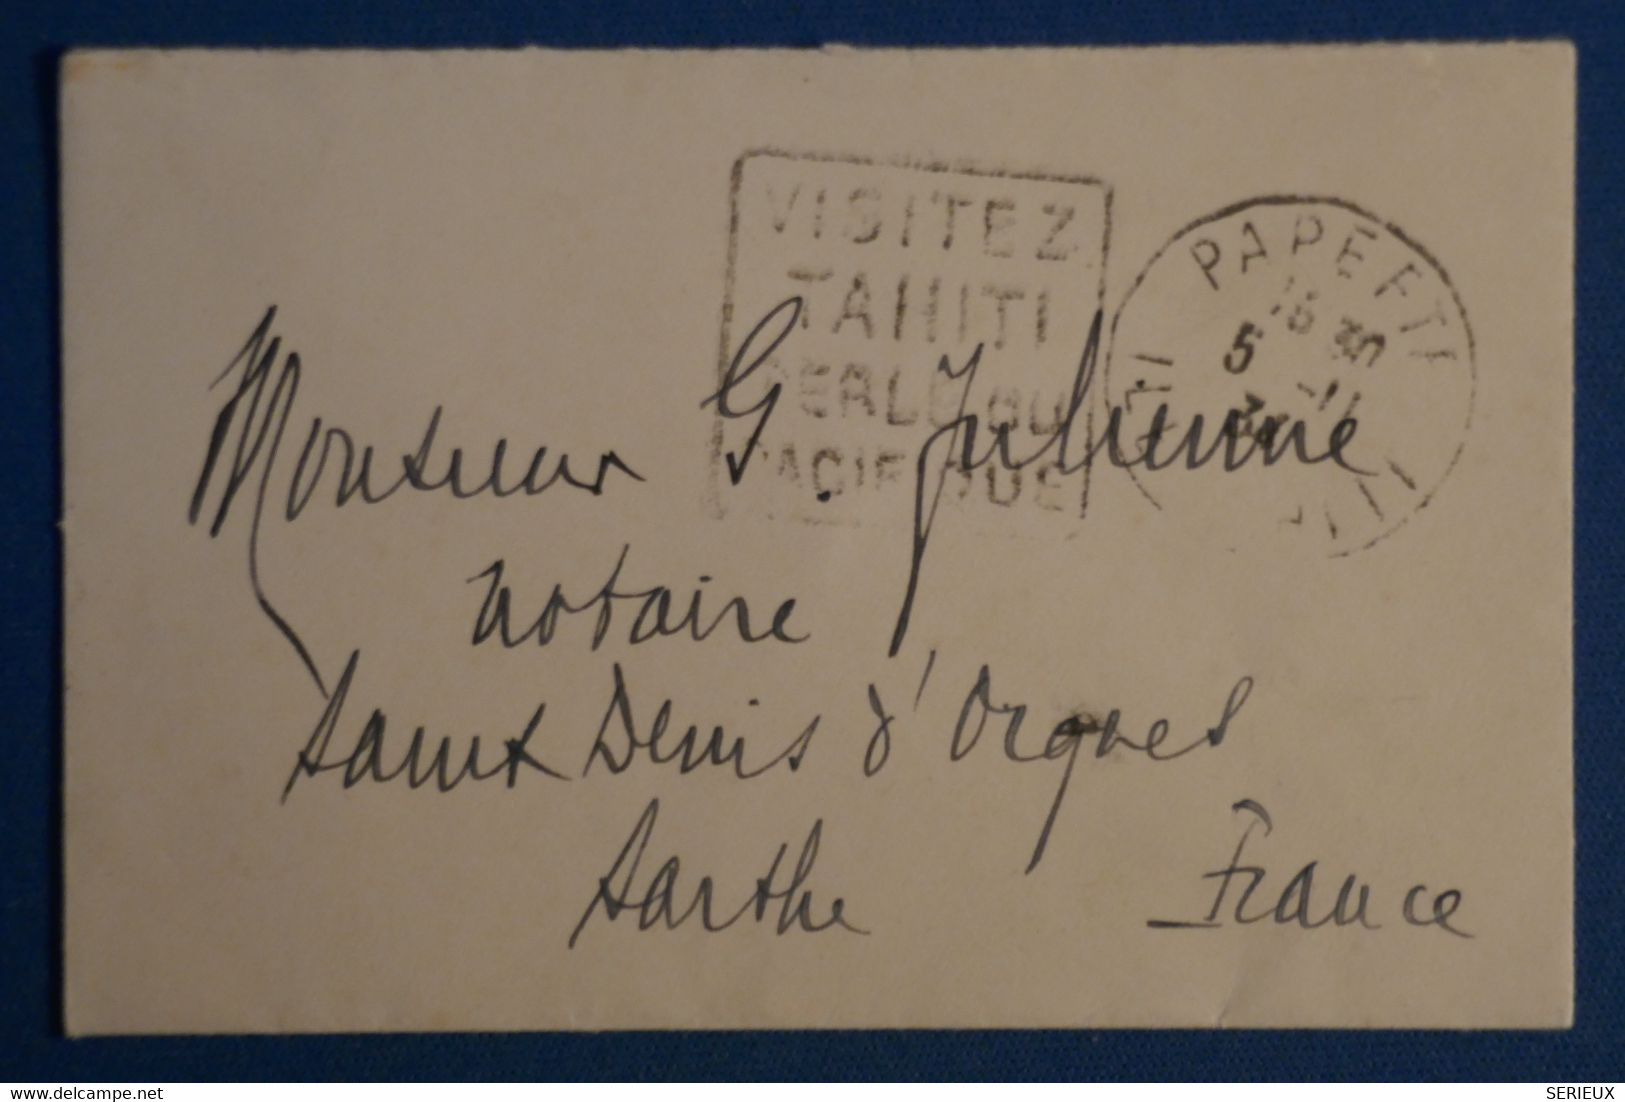 VISITEZ
TAHITI
PERLE DU
PACIFIQUE
PAPEETE
5
Monsieur G. Julienne
Notaire
Saint Denis d'Orques
Sarthe France
www.delcampe.net
SERIEUX